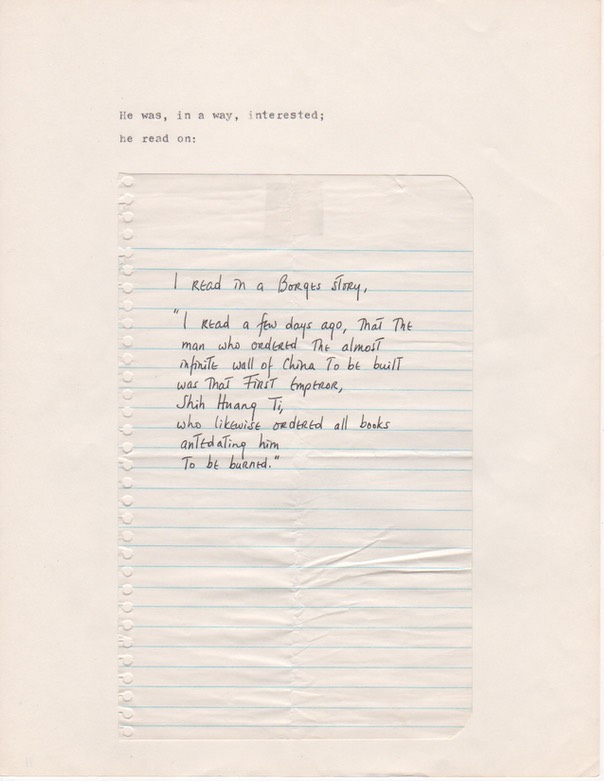 He was, in a way, interested;
he read on:
I read in a Borges story,
"I read a few days ago, that the
man who ordered the almost
infinite wall of China to be built
was that First Emperor,
Shih Huang Ti,
who likewise ordered all books
antedating him
to be burned."